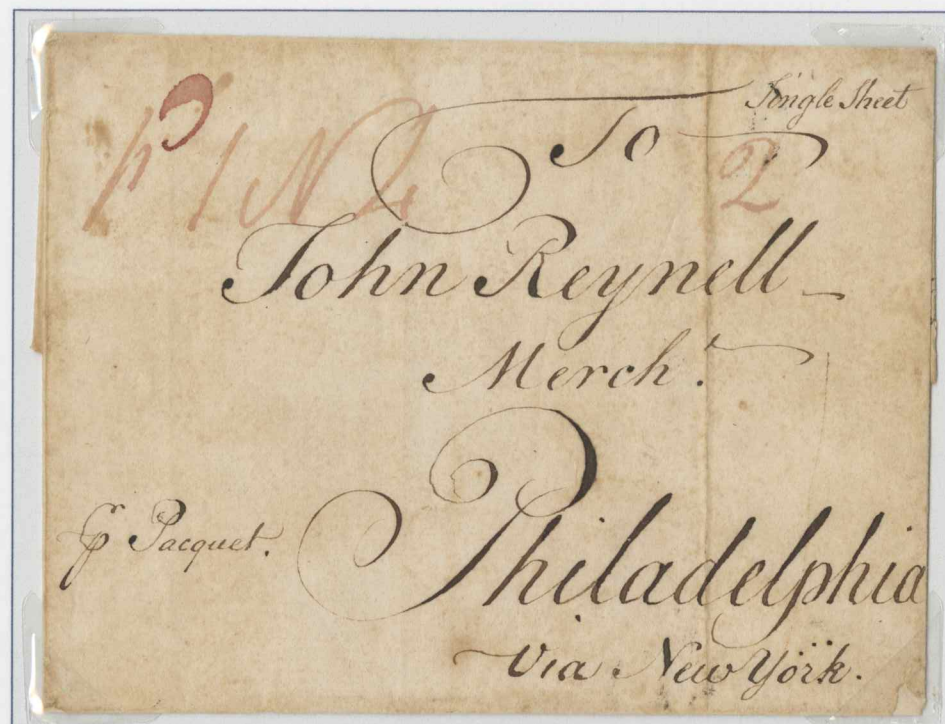 Single Sheet
To
2
John Reynell
Merch.t
℘ Pacquet.
Philadelphia
Via New York.